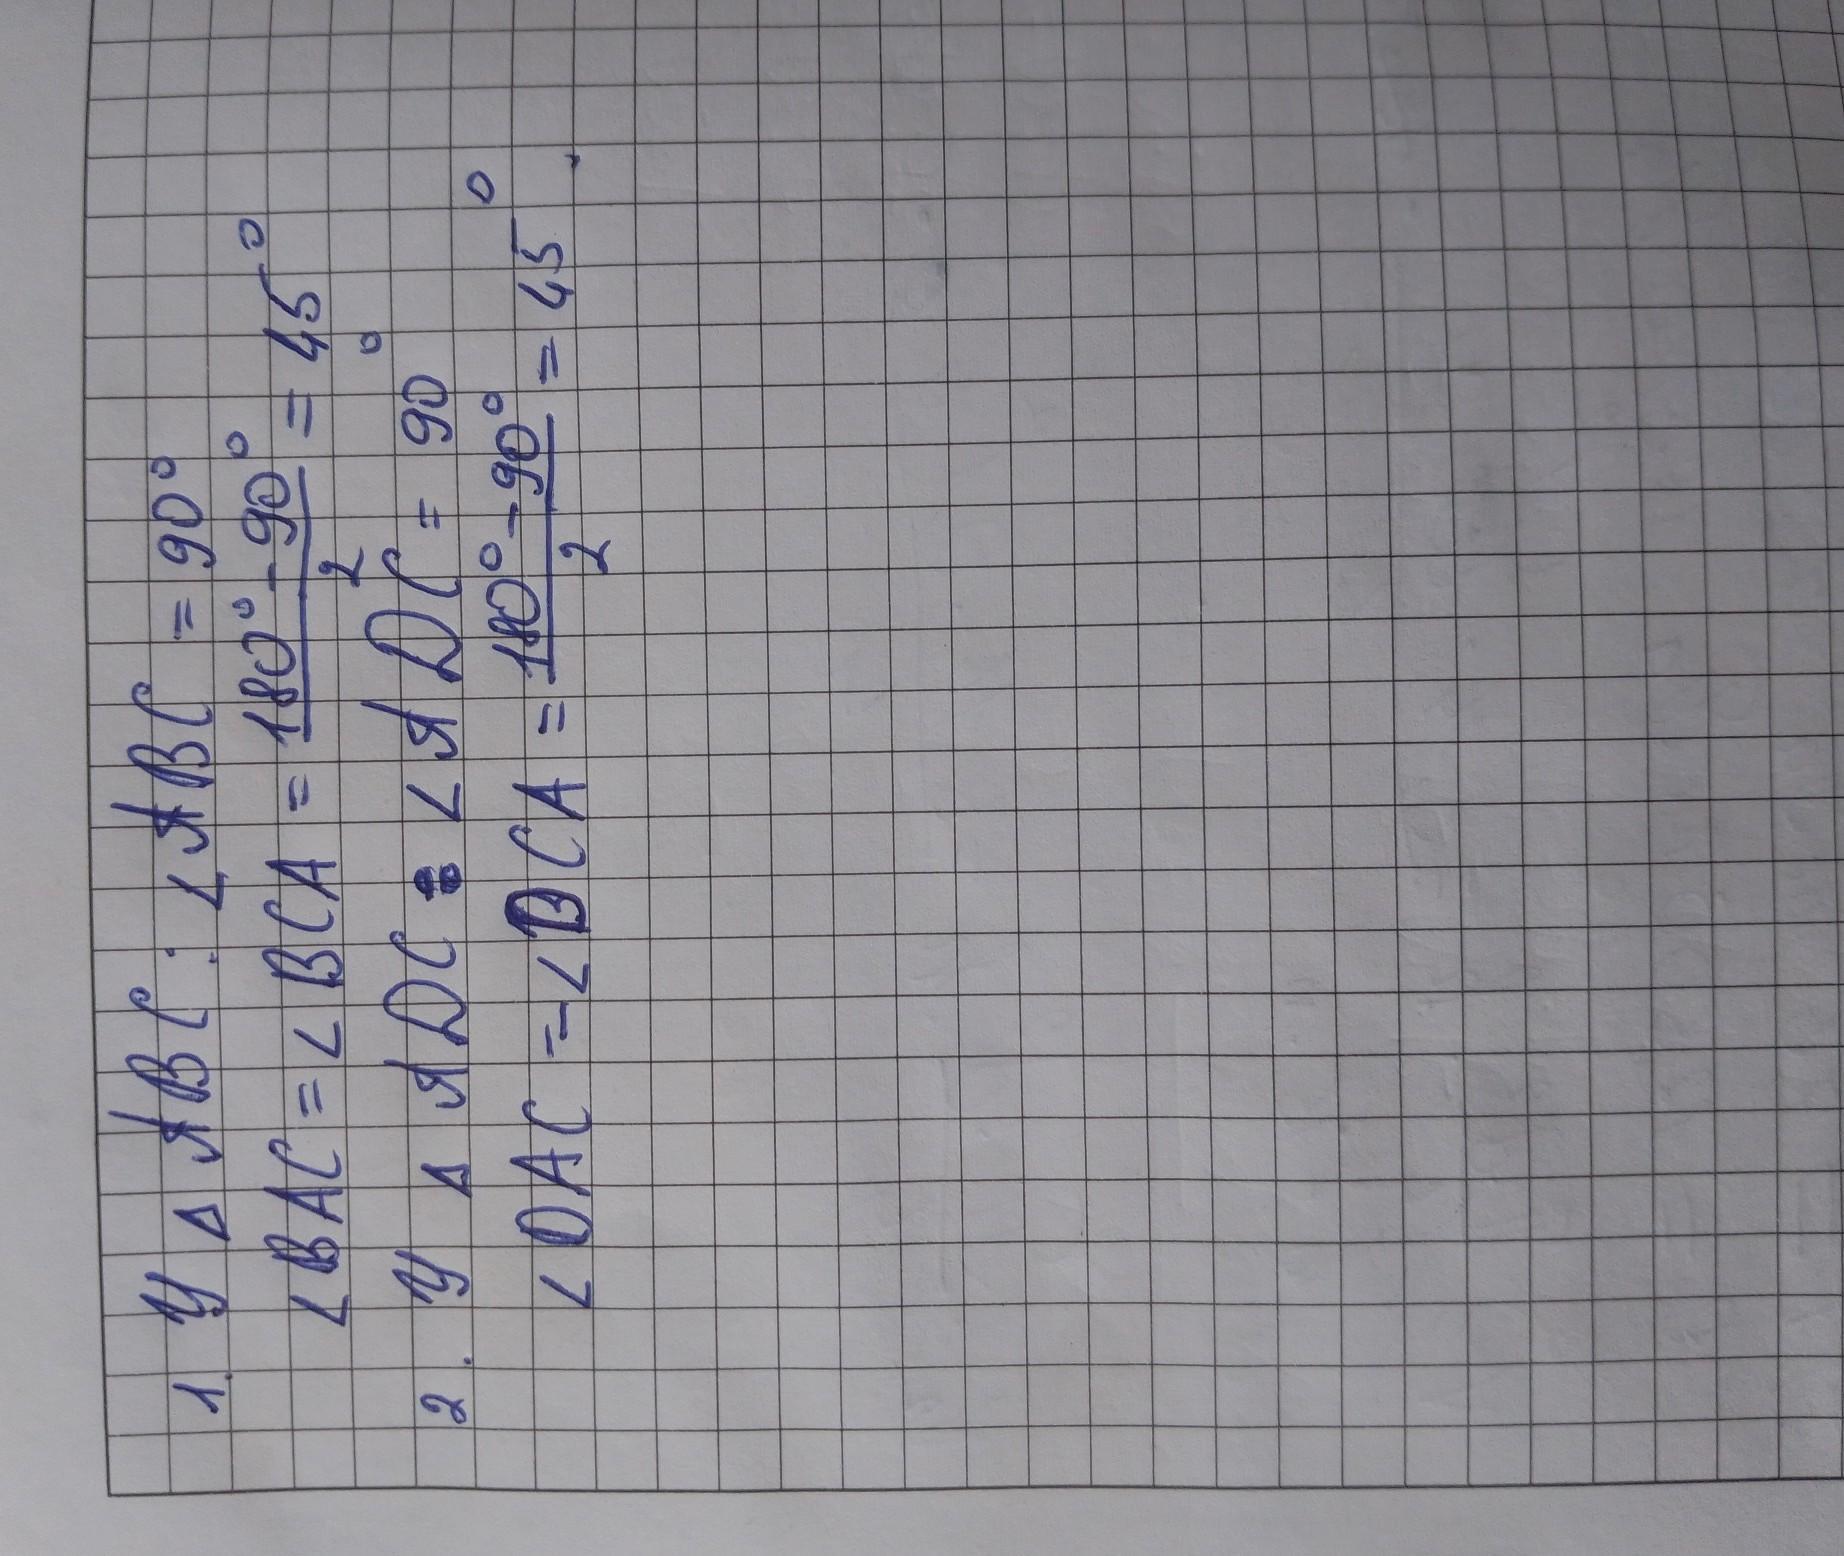 1. У Δ ABC: ∠ABC = 90°
∠BAC = ∠BCA = (180° - 90°)/2 = 45°
2. У Δ ADC: ∠ADC = 90°
∠DAC = ∠DCA = (180° - 90°)/2 = 45°.